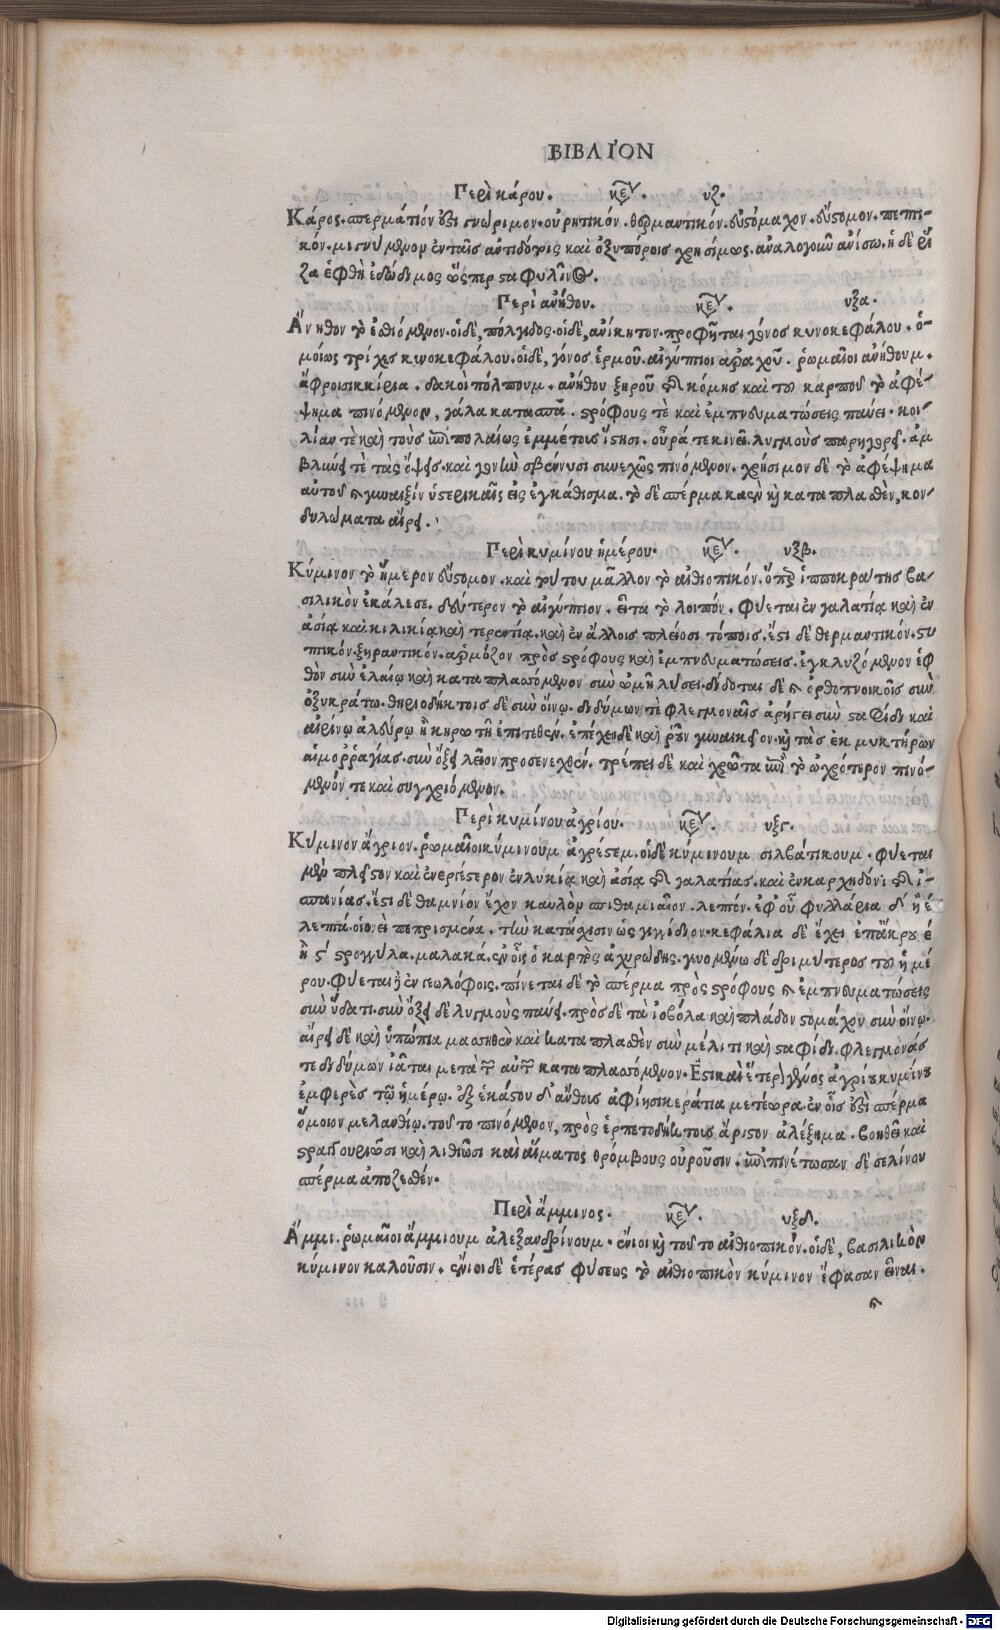 ΒΙΒΛΙΌΝ
Περὶ κάρου. κεφ. υξ.
Κάρος. σπερμάτιόν ἐστι γνώριμον. οὐρητικόν. θερμαντικόν. εὐστόμαχον. εὔστομον. πεπτι-
κόν. μιγνύμενον ἐν ταῖς ἀντιδότοις καὶ ὀξυπόροις χρησίμως. ἀναλογοῦν ἀνίσω. ἡ δὲ ῥί
ζα ἑφθὴ ἐδώδιμος ὥσπερ σταφυλῖνος.
Περὶ ἀνήθου. κεφ. υξα.
Ἄνηθον τὸ ἐσθιόμενον. οἱ δὲ, πόλγιδος. οἱ δὲ, ἀνίκητον. προφῆται γόνος κυνοκεφάλου. ὁ-
μοίως τρίχες κυνοκεφάλου. οἱ δὲ, γόνος ἑρμοῦ. αἰγύπτιοι ἀραχοῦ. ῥωμαῖοι ἀνήθουμ.
ἄφροι σικκίρια. δακοὶ πόλπουμ. ἀνήθου ξηροῦ τῆς κόμης καὶ τοῦ καρποῦ τὸ ἀφέ-
ψημα πινόμενον, γάλα κατασπᾶ. στρόφους τὲ καὶ ἐμπνευματώσεις παύει. κοι-
λίαν τὲ καὶ τοὺς ἐπιπολαίως ἐμμέτους ἵστησι. οὖρά τε κινεῖ. λυγμοὺς παρηγορεῖ. ἀμ
βλύνει τὲ τὰς ὄψεις. καὶ γονὴν σβέννυσι συνεχῶς πινόμενον. χρήσιμον δὲ τὸ ἀφέψημα
αὐτοῦ καὶ γυναιξὶν ὑστερικαῖς εἰς ἐγκάθισμα. τὸ δὲ σπέρμα καὲν καὶ καταπλασθὲν, κον-
δυλώματα αἴρει.
Περὶ κυμίνου ἡμέρου. κεφ. υξβ.
Κύμινον τὸ ἥμερον εὔστομον. καὶ τούτου μᾶλλον τὸ αἰθιοπικόν. ὅπερ ἱπποκράτης βα-
σιλικὸν ἐκάλεσε. δεύτερον τὸ αἰγύπτιον. εἶτα τὸ λοιπόν. φύεται ἐν γαλατίᾳ καὶ ἐν
ἀσίᾳ καὶ κιλικίᾳ καὶ τερεντίᾳ. καὶ ἐν ἄλλοις πλείοσι τόποις. ἔστι δὲ θερμαντικόν. στυ
πτικόν. ξηραντικόν. ἁρμόζον πρὸς στρόφους καὶ ἐμπνευματώσεις. ἐγκλυζόμενον ἑφ
θὸν σὺν ἐλαίῳ καὶ καταπλασσόμενον σὺν ὠμῇ λύσει. δίδοται δὲ καὶ ὀρθοπνοικοῖς σὺν
ὀξυκράτῳ. θηριοδήκτοις δὲ σὺν οἴνῳ. διδύμων τὲ φλεγμοναῖς ἀρήγει σὺν σταφίδι καὶ
αἰρίνῳ ἀλεύρῳ ἢ κηρωτῇ ἐπιτεθέν. ἐπέχει δὲ καὶ ῥοῦν γυναικεῖον. καὶ τὰς ἐκ μυκτήρων
αἱμοῤῥαγίας. σὺν ὄξει λεῖον προσενεχθέν. τρέπει δὲ καὶ χρῶτα ἐπὶ τὸ ὠχρότερον πινό-
μενόν τε καὶ συγχριόμενον.
Περὶ κυμίνου ἀγρίου. κεφ. υξγ.
Κύμινον ἄγριον. ῥωμαῖοι κύμινουμ ἀγρέστεμ. οἱ δὲ κύμινουμ σιλβάτικουμ. φύεται
μὲν πλεῖστον καὶ ἐνεργέστερον ἐν λυκίᾳ καὶ ἀσίᾳ τῆς γαλατίας. καὶ ἐν καρχηδόνι τῆς ἱ-
σπανίας. ἔστι δὲ θαμνίον ἔχον καυλὸν σπιθαμιαῖον. λεπτόν. ἐφ' οὗ φυλλάρια δ' ἢ έ
λεπτά. οἱονεὶ πεπρισμένα. τὴν κατάσχισιν ὡς γιγγίδιον. κεφάλια δὲ ἔχει ἐπ' ἄκρου έ
ἢ ϛ' στρογγύλα. μαλακά. ἐν οἷς ὁ καρπὸς ἀχυρώδης. γευομένῳ δὲ δριμύτερος τοῦ ἡμέ
ρου. φύεται ἢ ἐν γεωλόφοις. πίνεται δὲ τὸ σπέρμα πρὸς στρόφους καὶ ἐμπνευματώσεις
σὺν ὕδατι. σὺν ὄξει δὲ λυγμοὺς παύει. πρὸς δὲ τὰ ἰοβόλα καὶ πλάδον στομάχου σὺν οἴνῳ.
αἴρει δὲ καὶ ὑπώπια μασηθὲν καὶ καταπλασθὲν σὺν μέλιτι καὶ σταφίδι. φλεγμονάς
τε διδύμων ἰᾶται μετὰ τῶν αὐτῶν καταπλασσόμενον. Ἔστι καὶ ἕτερον γένος ἀγρίου κυμίνου
ἐμφερὲς τῷ ἡμέρῳ. ἐξ ἑκάστου δ' ἄνθους ἀφίησι κεράτια μετέωρα. ἐν οἷς ἐστὶ σπέρμα
ὅμοιον μελανθίῳ. τοῦτο πινόμενον, πρὸς ἑρπετοδήκτους ἄριστον ἀλέξημα. βοηθεῖ καὶ
στραγγουριῶσι καὶ λιθιῶσι καὶ αἵματος θρόμβους οὐροῦσιν. ἐπιπινέτωσαν δὲ σελίνου
σπέρμα ἀποζεσθέν.
Περὶ ἄμμινος. κεφ. υξδ.
Ἄμμι. ῥωμαῖοι ἄμμιουμ ἀλεξανδρίνουμ. ἔνιοι καὶ τοῦτο αἰθιοπικόν. οἱ δὲ, βασιλικὸν
κύμινον καλοῦσιν. ἔνιοι δὲ ἑτέρας φύσεως τὸ αἰθιοπικὸν κύμινον ἔφασαν εἶναι.
καὶ
Digitalisierung gefördert durch die Deutsche Forschungsgemeinschaft - DFG